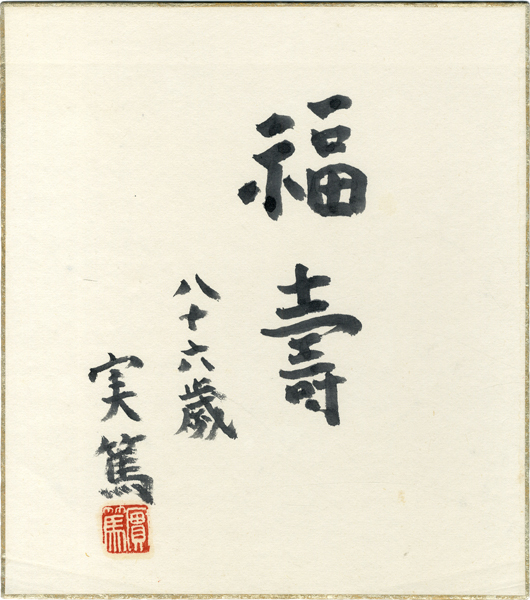 福壽
八十六歳
実篤
實篤